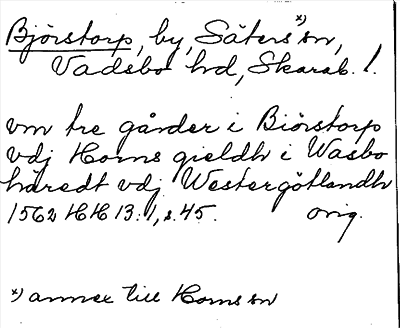 Björstorp, by, Säters *) sn,
Vadsbo hd, Skarab. l.
vm tre gårder i Biörstorp
vdj Horns gieldh i Wasbo
häredt vdj Westergötlandh
1562 HH 13:1, s. 45. orig.
*) annex till Horns sn